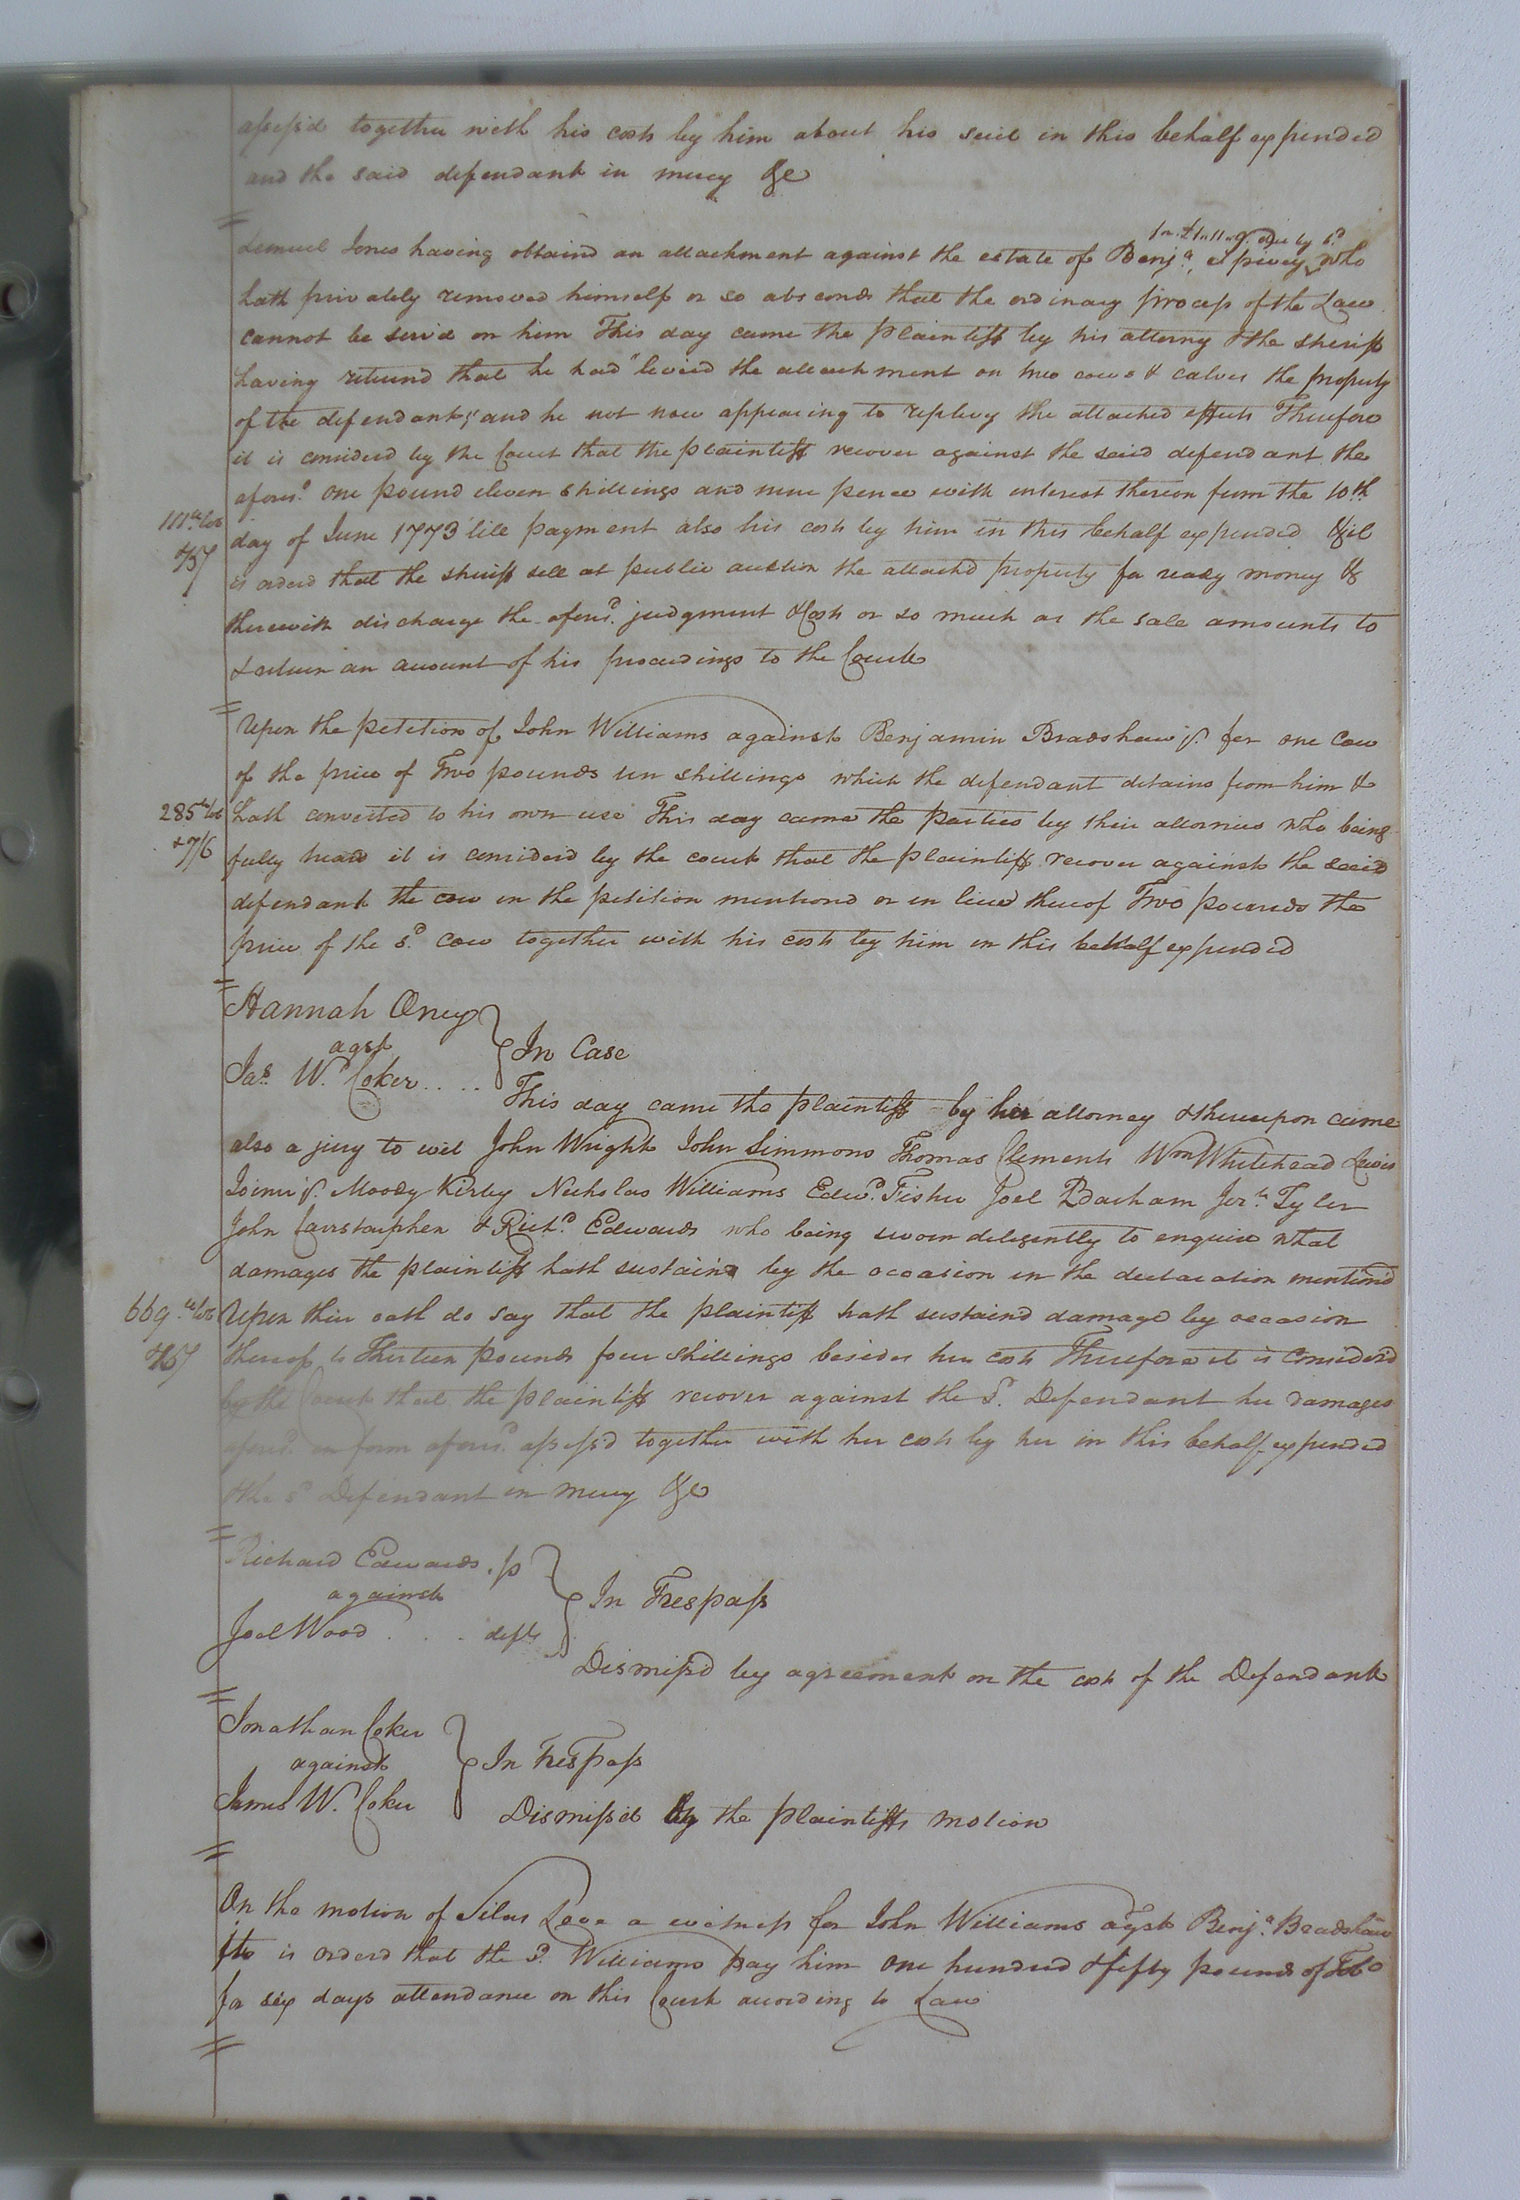 assess'd together with his costs by him about his suit in this behalf expended
and the said defendant in mercy &c
for £1..11..9. Due by s.d
Lemuel Jones having obtaind an attachment against the estate of Benj.a Spivey who
hath privately removed himself or so absconds that the ordinary process of the Law
cannot be serv'd on him This day came the plaintiff by his attorny & the sheriff
having returnd that he had "levied the attachment on two cows & calves the property
of the defendant," and he not now appearing to replevy the attached effects Therefore
it is considerd by the Court that the plaintiff recover against the said defendant the
afores.d one pound eleven shillings and nine pence with interest thereon from the 10th
111 tobo
day of June 1773 till payment also his costs by him in this behalf expended & it
is orderd that the sheriff sell at public auction the attachd property for ready money &
therewith discharge the afores.d judgment & Costs or so much as the sale amounts to
& return an account of his proceedings to the Court
Upon the petition of John Williams against Benjamin Bradshaw jr. for one Cow
of the price of Two pounds ten shillings which the defendant detains from him &
285 tobo
hath converted to his own use This day came the parties by their attornies who being
& 7/6
fully heard it is considerd by the court that the plaintiff recover against the said
defendant the cow in the petition mentiond or in lieu thereof Two pounds the
price of the s.d cow together with his costs by him in this behalf expended
Hannah Oney
agst
In Case
Jas. W. Coker....
This day came the plaintiff by her attorney & thereupon came
also a jury to wit John Wright John Simmons Thomas Clements Wm Whitehead Lewis
Joiner jr. Moody Kirby Nicholas Williams Edw.d Fisher Joel Barham Jer.h Tyler
John Carrstarphen & Rich.d Edwards who being sworn diligently to enquire what
damages the plaintiff hath sustaind by the occasion in the declaration mentiond
669 tobo
Upon their oath do say that the plaintiff hath sustaind damage by occasion
thereof to Thirteen pounds four shillings besides her costs Therefore it is Considerd
by the Court that the plaintiff recover against the s.d Defendant her damages
afores.d in form afores.d assess'd together with her costs by her in this behalf expended
& the s.d Defendant in mercy &c
Richard Edwards . p
against
In Trespass
Joel Wood . . . deft
Dismiss'd by agreement on the costs of the Defendant
Jonathan Coker
against
In Trespass
James W. Coker
Dismiss'd by the plaintiffs motion
On the motion of Silas Love a witness for John Williams agst Benj.a Bradshaw
it is orderd that the s.d Williams pay him one hundred & fifty pounds of Tobo
for six days attendance on this Court according to Law